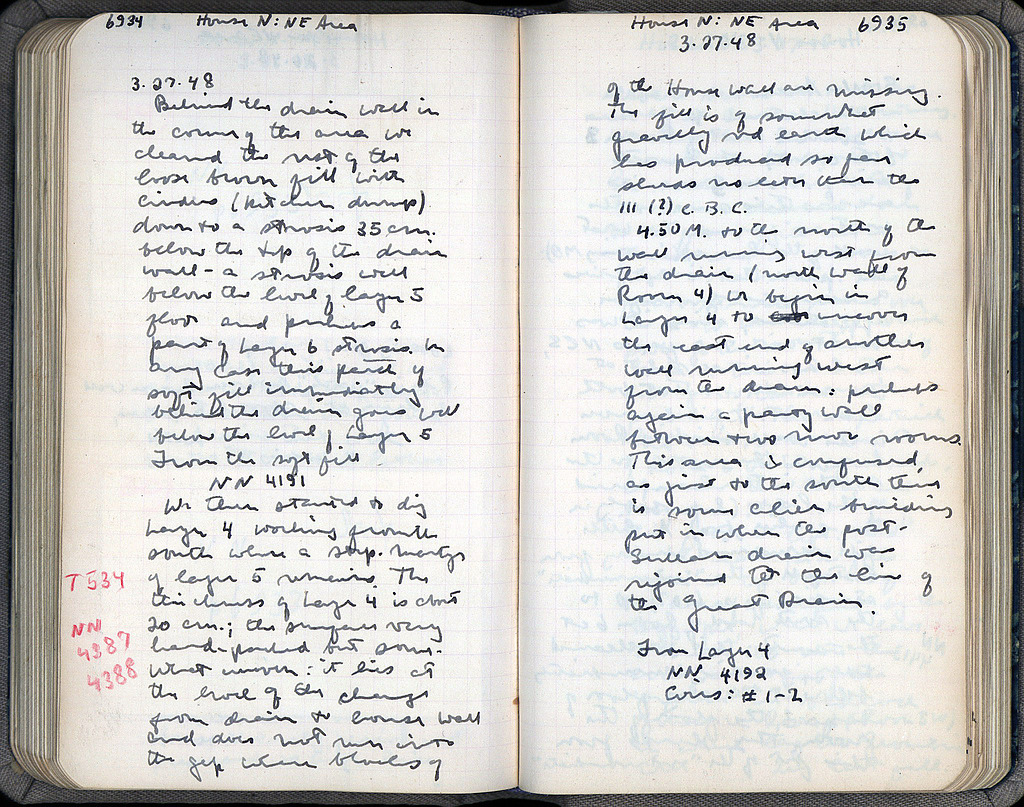 6934 House N: NE Area
3.27.48
Behind the drain wall in
the corner of the area we
cleared the rest of the
loose brown fill with
cinders (kitchen dump)
down to a strosis 35 cm.
below the top of the drain
wall - a strosis well
below the level of layer 5
floor and perhaps a
part of Layer 6 strosis. In
any case this patch of
soft fill immediately
behind the drain goes well
below the level of Layer 5
From the soft fill
NN 4191
We then started to dig
Layer 4 working from the
south where a strip
of layer 5 remains. The
thickness of Layer 4 is about
20 cm.; the surface very
hard-packed but some-
what uneven: it lies at
the level of the change
from drain to house wall
and does not run into
the gap where blocks of
T 534
NN
4387
4388
House N: NE Area 6935
3.27.48
of the House wall are missing.
The fill is of somewhat
gravelly red earth which
has produced so far
sherds no later than the
III (?) c. B.C.
4.50 M. to the north of the
wall running west from
the drain (north wall of
Room 4) we begin in
Layer 4 to uncover
the east end of another
wall running west
from the drain: perhaps
again a party wall
between two more rooms.
This area is confused,
as just to the south there
is some later building
put in when the post-
Sullan drain was
rejoined to the line of
the Great Drain.
From Layer 4
NN 4192
Coins: #1-2